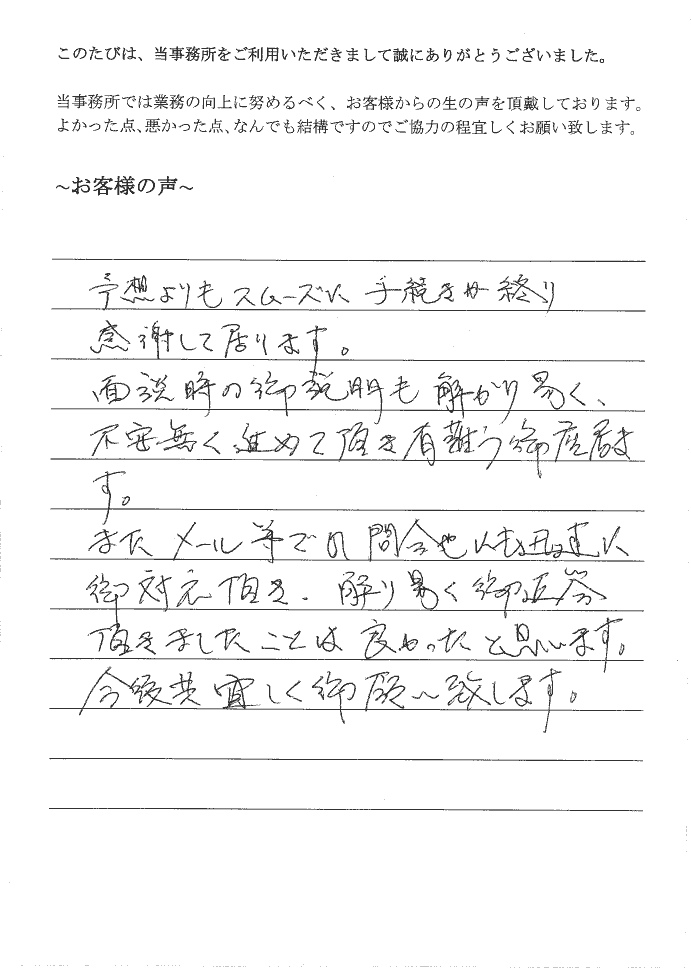 このたびは、当事務所をご利用いただきまして誠にありがとうございました。
当事務所では業務の向上に努めるべく、お客様からの生の声を頂戴しております。
よかった点、悪かった点、なんでも結構ですのでご協力の程宜しくお願い致します。
~お客様の声~
予想よりもスムーズに手続きが終り
感謝して居ります。
面談時の御説明も解かり易く、
不安無く進めて頂き有難う御座居ま
す。
またメール等での問合せにも迅速に
御対応頂き、解り易く御返答
頂きましたことは良かったと思います。
今後共宜しく御願い致します。